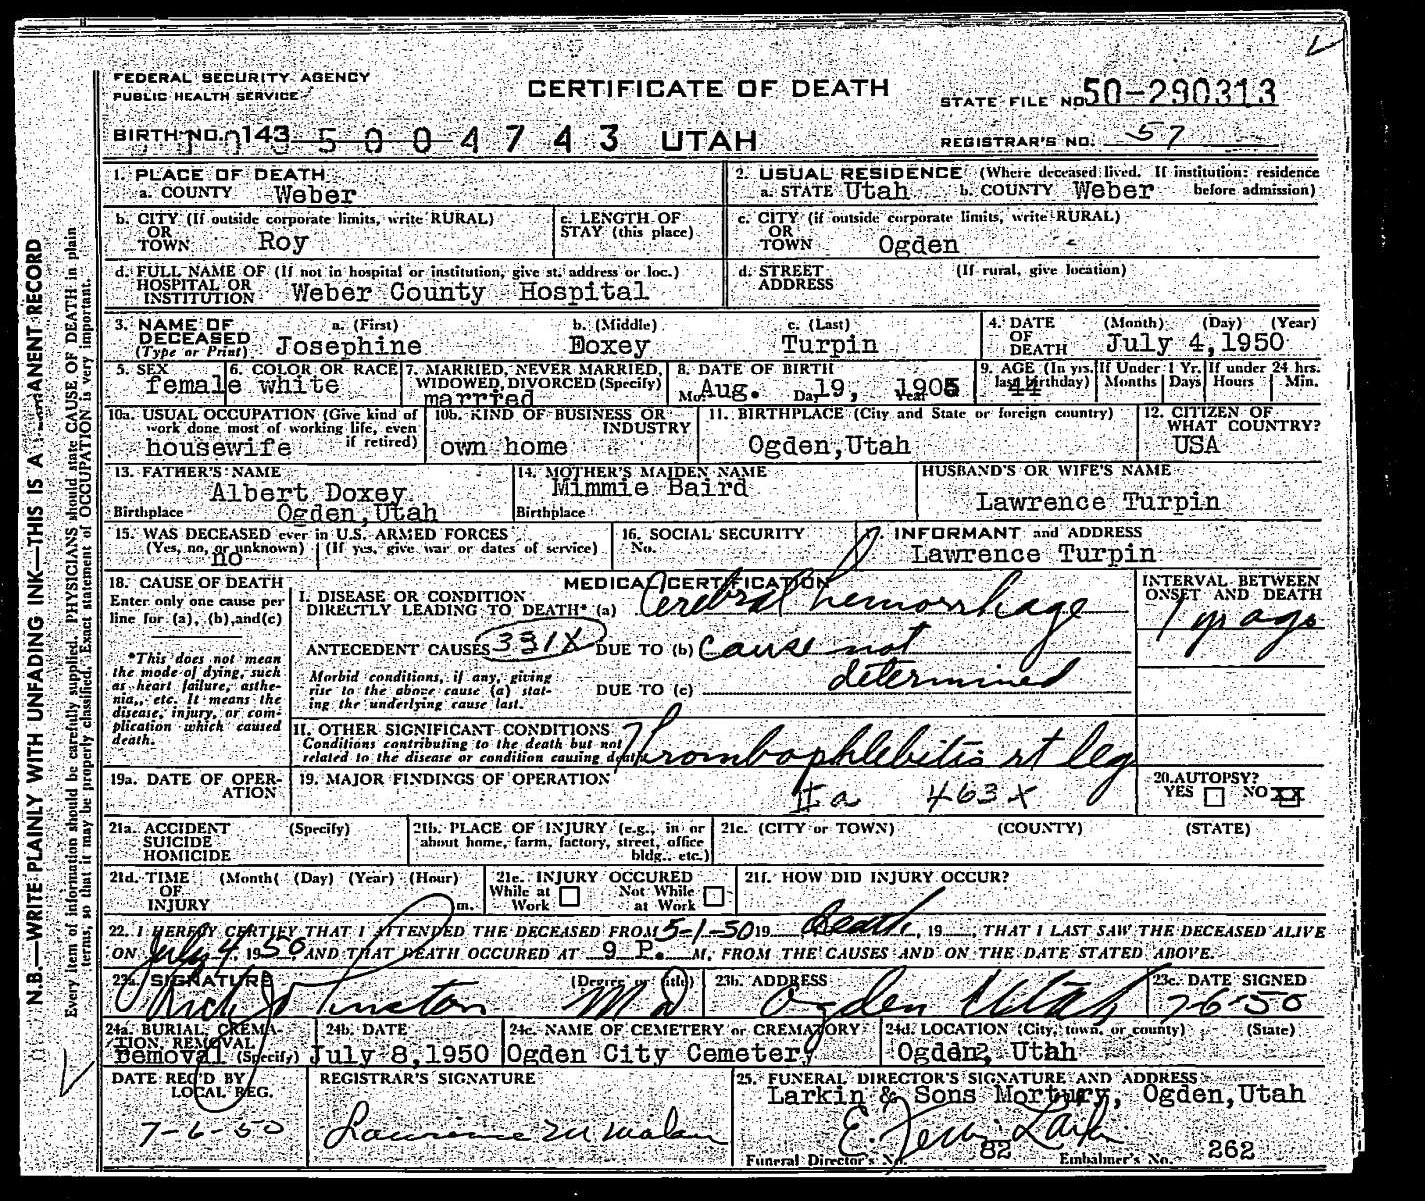 FEDERAL SECURITY AGENCY
PUBLIC HEALTH SERVICE
CERTIFICATE OF DEATH
STATE FILE NO. 50-290313
BIRTH NO. 143 5004743 UTAH
REGISTRAR'S NO. 57
1. PLACE OF DEATH
a. COUNTY Weber
2. USUAL RESIDENCE (Where deceased lived. If institution: residence before admission)
a. STATE Utah b. COUNTY Weber
b. CITY (If outside corporate limits, write RURAL)
OR
TOWN Roy
c. LENGTH OF
STAY (this place)
c. CITY (if outside corporate limits, write RURAL)
OR
TOWN Ogden
d. FULL NAME OF (If not in hospital or institution, give st. address or loc.)
HOSPITAL OR
INSTITUTION Weber County Hospital
d. STREET (If rural, give location)
ADDRESS
3. NAME OF DECEASED (Type or Print)
a. (First) b. (Middle) c. (Last)
Josephine Doxey Turpin
4. DATE OF DEATH (Month) (Day) (Year)
July 4,1950
5. SEX
female
6. COLOR OR RACE
white
7. MARRIED, NEVER MARRIED,
WIDOWED, DIVORCED (Specify)
married
8. DATE OF BIRTH
Mo. Aug. Day 19, Year 1905
9. AGE (In yrs. last birthday) 44
If Under 1 Yr. Months Days
If under 24 hrs. Hours Min.
10a. USUAL OCCUPATION (Give kind of
work done most of working life, even
if retired)
housewife
10b. KIND OF BUSINESS OR
INDUSTRY
own home
11. BIRTHPLACE (City and State or foreign country)
Ogden,Utah
12. CITIZEN OF
WHAT COUNTRY?
USA
13. FATHER'S NAME
Albert Doxey
Birthplace Ogden,Utah
14. MOTHER'S MAIDEN NAME
Mimmie Baird
Birthplace
HUSBAND'S OR WIFE'S NAME
Lawrence Turpin
15. WAS DECEASED ever in U.S. ARMED FORCES
(Yes, no, or unknown) (If yes, give war or dates of service)
no
16. SOCIAL SECURITY
No.
INFORMANT and ADDRESS
Lawrence Turpin
18. CAUSE OF DEATH
Enter only one cause per
line for (a), (b),and(c)
*This does not mean
the mode of dying, such
as heart failure, asthe-
nia, etc. It means the
disease, injury, or com-
plication which caused
death.
MEDICAL CERTIFICATION
I. DISEASE OR CONDITION
DIRECTLY LEADING TO DEATH* (a) Cerebral hemorrhage
ANTECEDENT CAUSES 331X DUE TO (b) cause not
determined
Morbid conditions, if any, giving
rise to the above cause (a) stat-
ing the underlying cause last.
DUE TO (c)
INTERVAL BETWEEN
ONSET AND DEATH
1 yr ago
II. OTHER SIGNIFICANT CONDITIONS
Conditions contributing to the death but not
related to the disease or condition causing death.
Thrombophlebitis rt leg
19a. DATE OF OPER-
ATION
19. MAJOR FINDINGS OF OPERATION
II a 463x
20. AUTOPSY?
YES NO XX
21a. ACCIDENT (Specify)
SUICIDE
HOMICIDE
21b. PLACE OF INJURY (e.g., in or
about home, farm, factory, street, office
bldg., etc.)
21c. (CITY or TOWN) (COUNTY) (STATE)
21d. TIME (Month( (Day) (Year) (Hour)
OF
INJURY m.
21e. INJURY OCCURED
While at Work Not While at Work
21f. HOW DID INJURY OCCUR?
22. I HEREBY CERTIFY THAT I ATTENDED THE DECEASED FROM 5-1-50 19 Death, 19 , THAT I LAST SAW THE DECEASED ALIVE
ON July 4, 1950, AND THAT DEATH OCCURED AT 9 P. M. FROM THE CAUSES AND ON THE DATE STATED ABOVE.
23a. SIGNATURE (Degree or title) M D
23b. ADDRESS Ogden Utah
23c. DATE SIGNED
7-6-50
24a. BURIAL, CREMA-
TION, REMOVAL
Removal (Specify)
24b. DATE
July 8,1950
24c. NAME OF CEMETERY or CREMATORY
Ogden City Cemetery
24d. LOCATION (City, town, or county) (State)
Ogden, Utah
DATE REC'D BY
LOCAL REG.
7-6-50
REGISTRAR'S SIGNATURE
25. FUNERAL DIRECTOR'S SIGNATURE AND ADDRESS
Larkin & Sons Mortury, Ogden,Utah
Funeral Director's No. 82 Embalmer's No. 262
N.B.—WRITE PLAINLY WITH UNFADING INK—THIS IS A PERMANENT RECORD
Every item of information should be carefully supplied. PHYSICIANS should state CAUSE OF DEATH in plain
terms, so that it may be properly classified. Exact statement of OCCUPATION is very important.